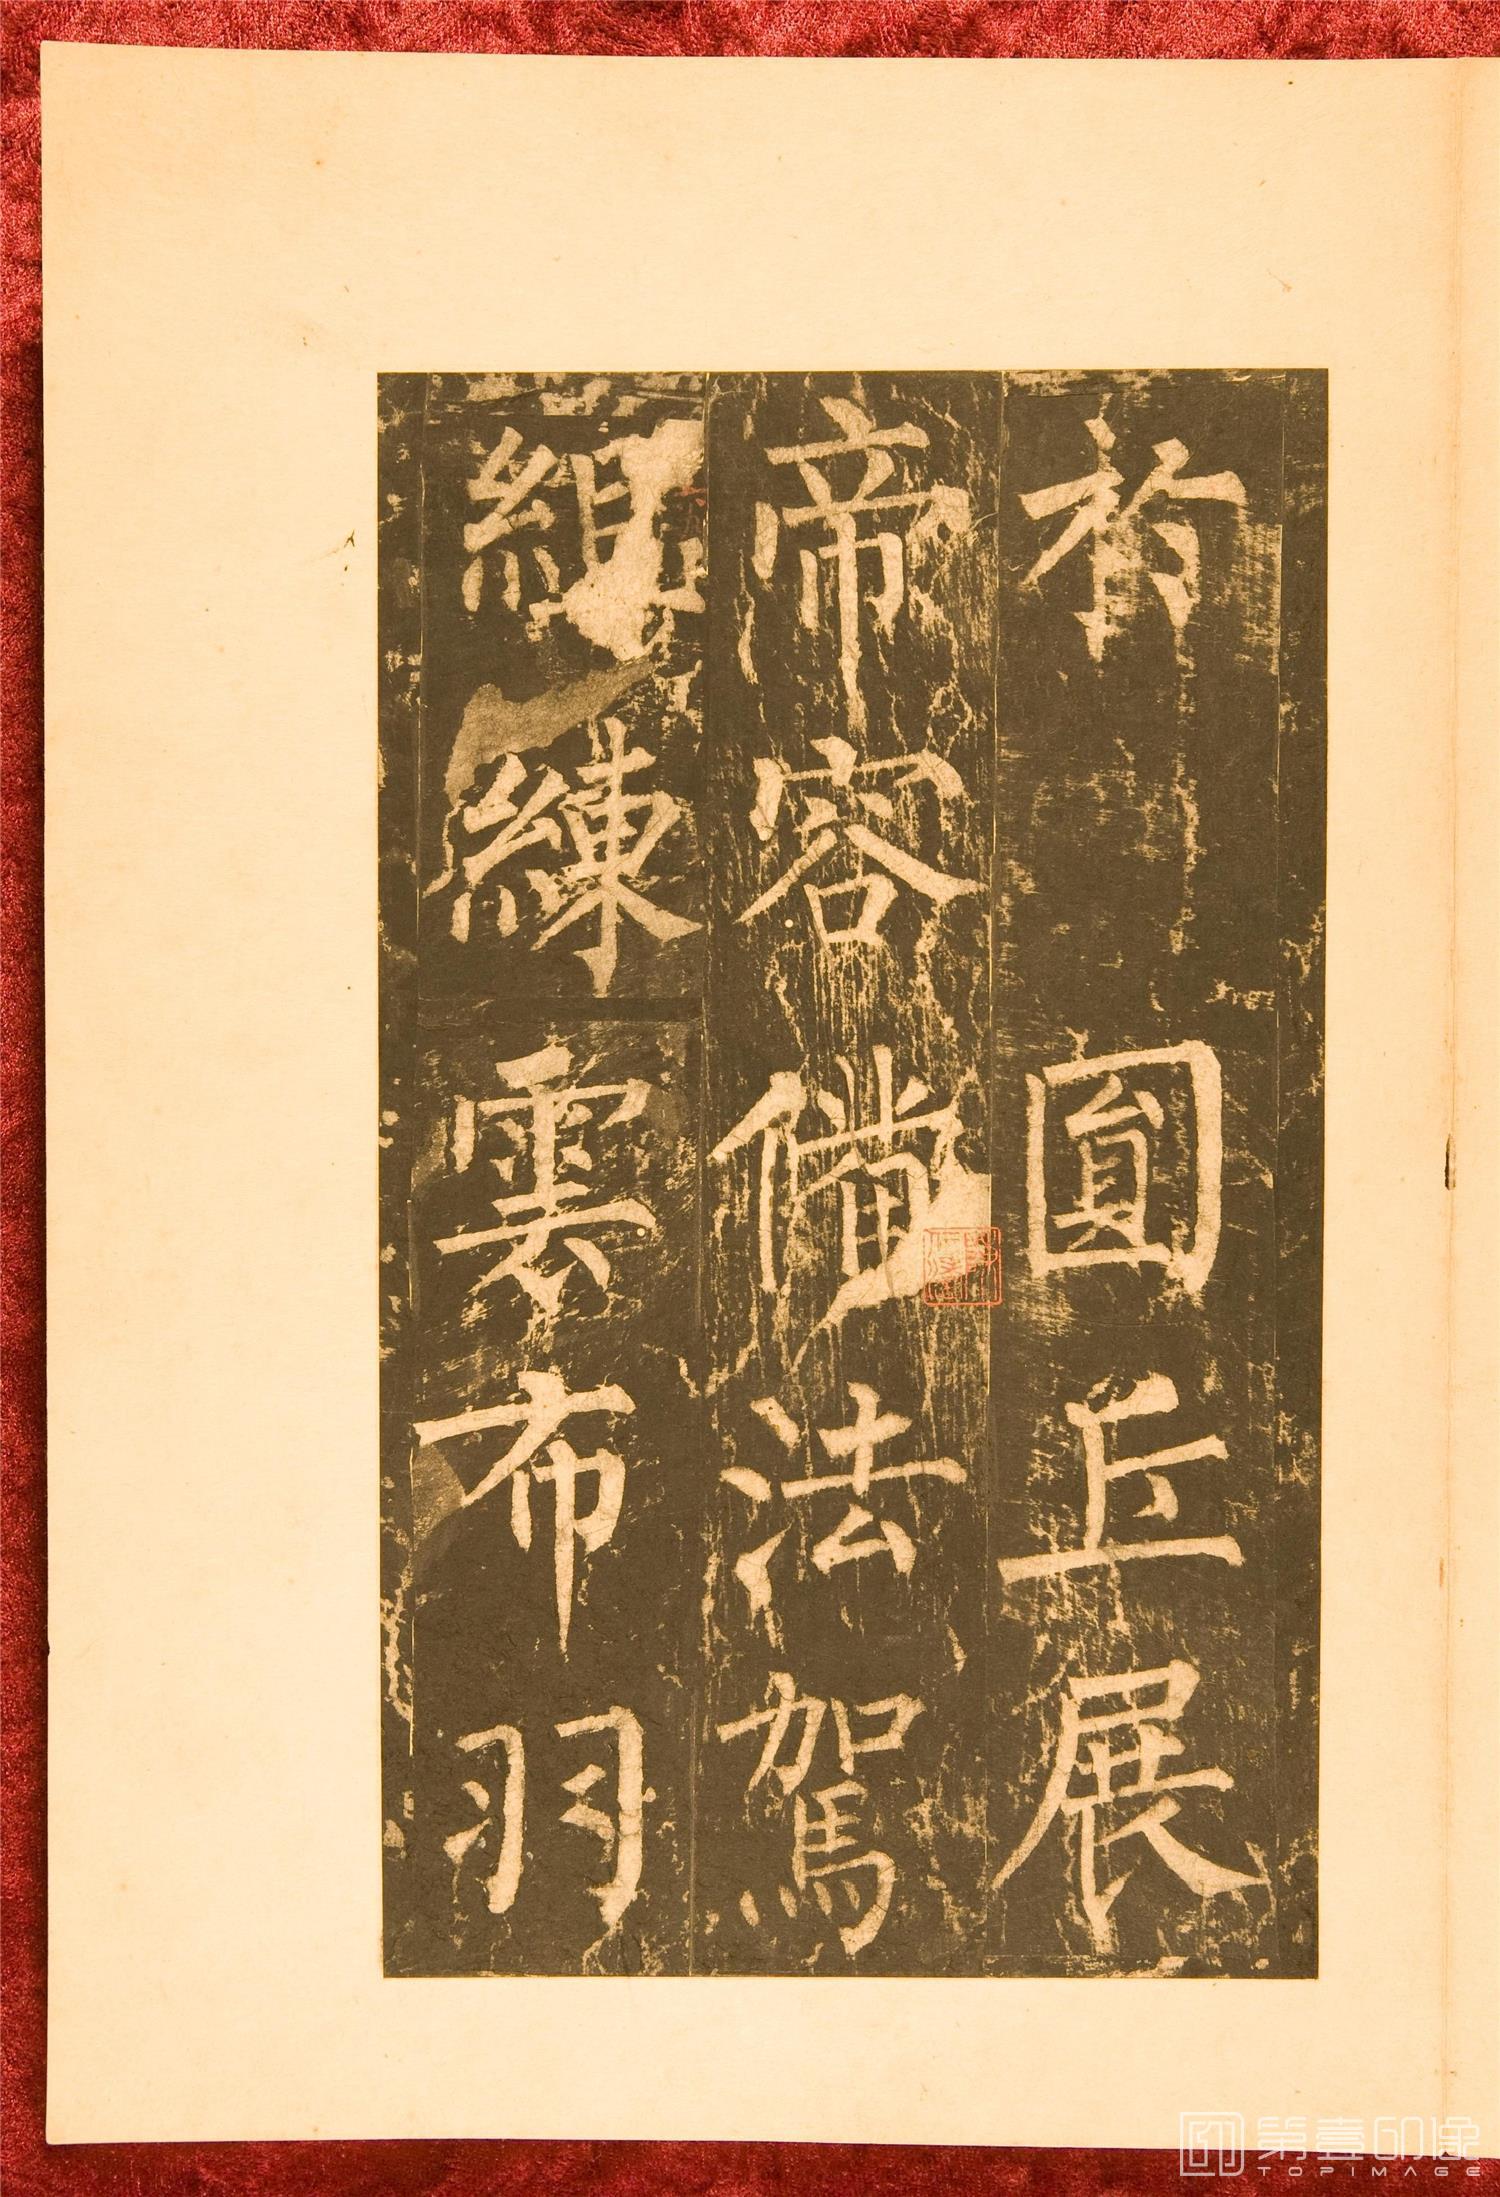 於 圓丘展
帝容備法駕
組練雲布羽
第壹印像
TOPIMAGE